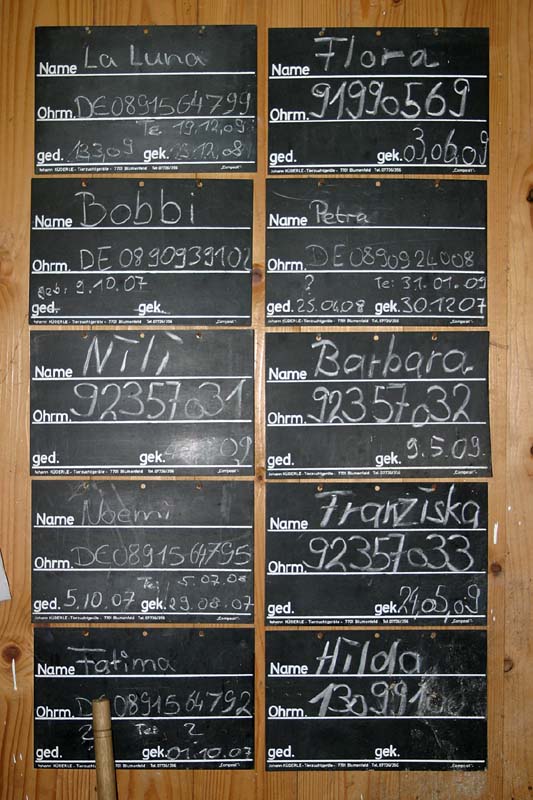 Name La Luna
Ohrm. DE0891564799
Te: 19.12.09
ged. 13.3.09 gek. 12.08
Johann KÜDERLE - Tierzuchtgeräte - 7701 Blumenfeld Tel. 07736/356 „Compost“
Name Flora
Ohrm. 91990569
ged. gek. 03.06.09
Johann KÜDERLE - Tierzuchtgeräte - 7701 Blumenfeld Tel. 07736/356 „Compost“
Name Bobbi
Ohrm. DE 0890939102
geb: 9.10.07
ged. gek.
Johann KÜDERLE - Tierzuchtgeräte - 7701 Blumenfeld Tel. 07736/356 „Compost“
Name Petra
Ohrm. DE 0890924008
? Te: 31.01.09
ged. 25.04.08 gek. 30.12.07
Johann KÜDERLE - Tierzuchtgeräte - 7701 Blumenfeld Tel. 07736/356 „Compost“
Name Nili
Ohrm. 92357031
ged. gek.
Johann KÜDERLE - Tierzuchtgeräte - 7701 Blumenfeld Tel. 07736/356 „Compost“
Name Barbara
Ohrm. 92357032
ged. gek. 9.5.09.
Johann KÜDERLE - Tierzuchtgeräte - 7701 Blumenfeld Tel. 07736/356 „Compost“
Name Noemi
Ohrm. DE0891564795
Te: 5.07.08
ged. 5.10.07 gek. 29.08.07
Johann KÜDERLE - Tierzuchtgeräte - 7701 Blumenfeld Tel. 07736/356 „Compost“
Name Franziska
Ohrm. 92357033
ged. gek. 24.05.09
Johann KÜDERLE - Tierzuchtgeräte - 7701 Blumenfeld Tel. 07736/356 „Compost“
Name Fatima
Ohrm. DE 0891564792
? Te: ?
ged. gek. 01.10.07
Johann KÜDERLE - Tierzuchtgeräte - 7701 Blumenfeld Tel. 07736/356 „Compost“
Name Hilda
Ohrm.
ged. gek.
Johann KÜDERLE - Tierzuchtgeräte - 7701 Blumenfeld Tel. 07736/356 „Compost“